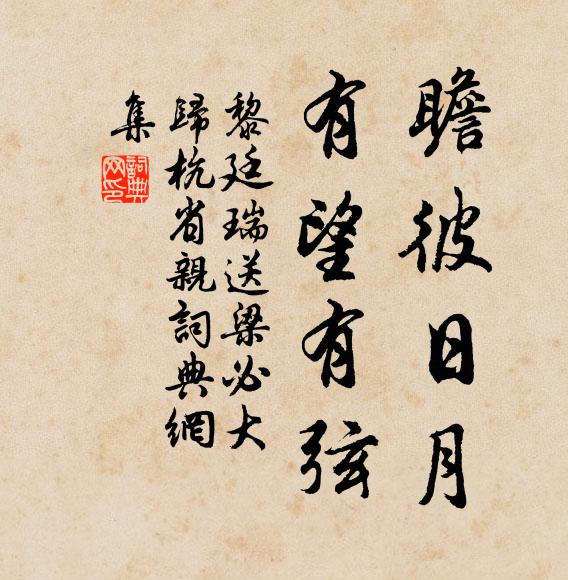 瞻彼日月
有望有弦
黎廷瑞送梁必大
歸杭省親詞典網
集
詞典網印